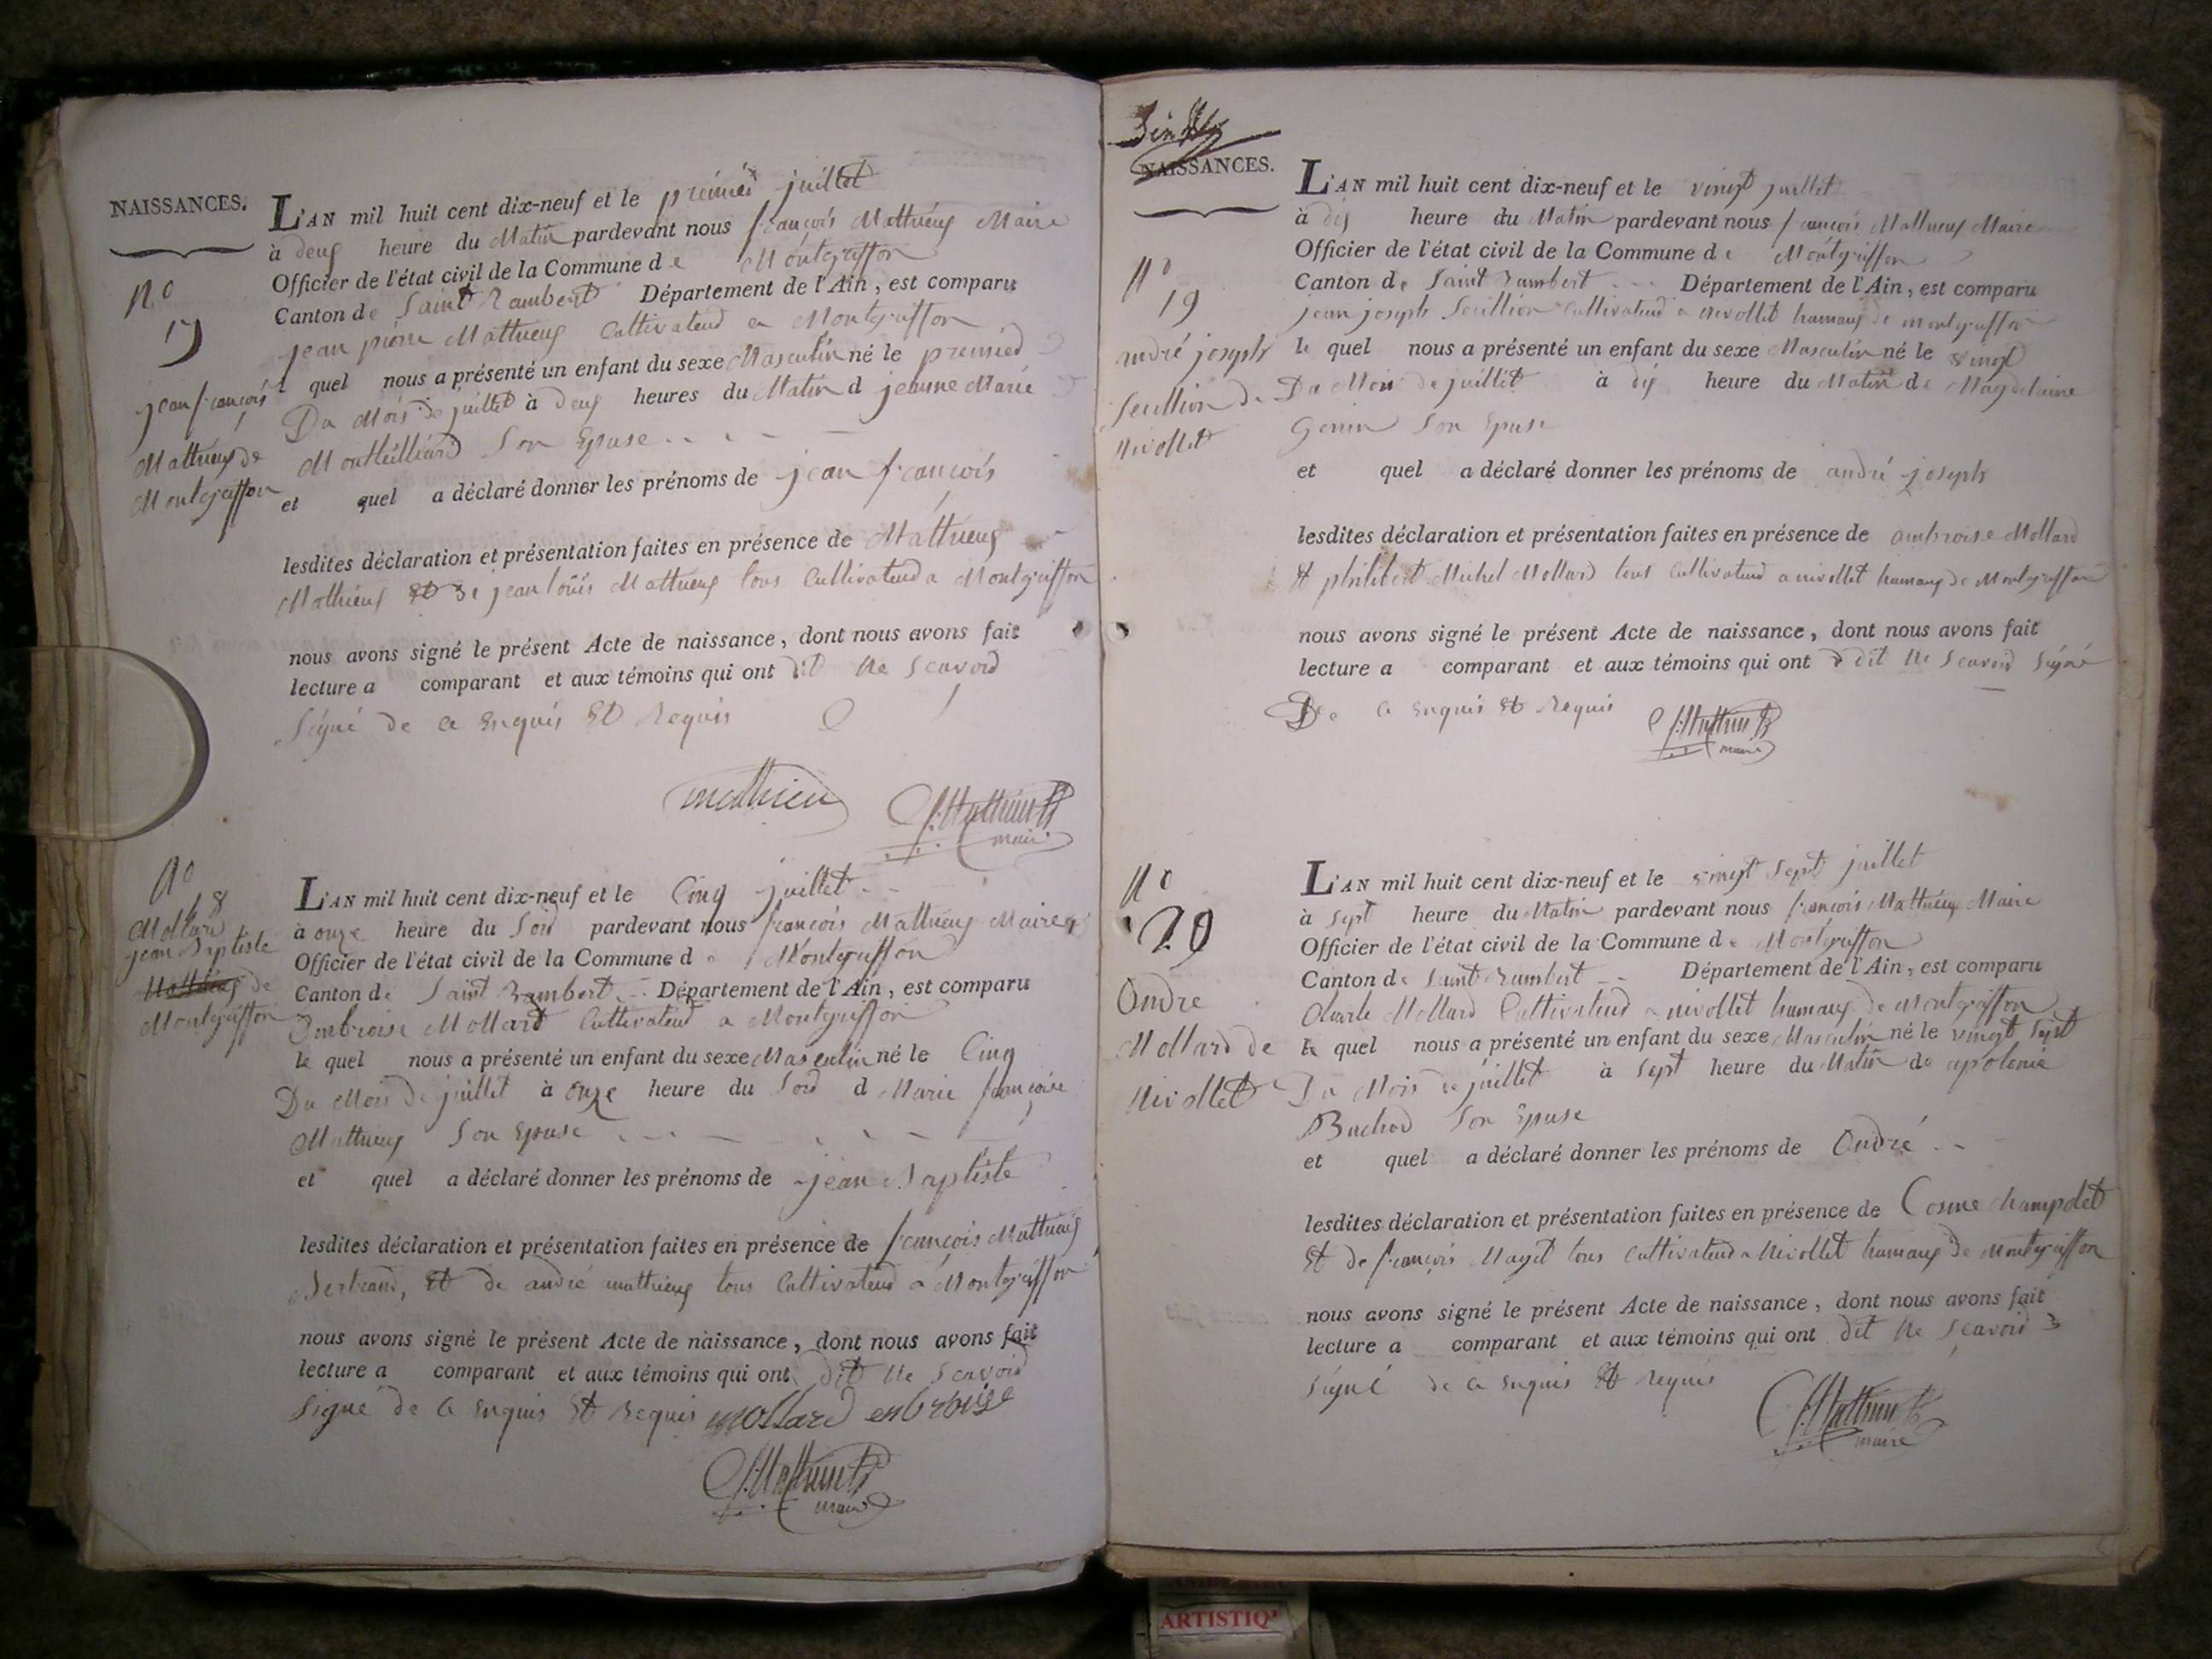 NAISSANCES.
L'AN mil huit cent dix-neuf et le premier juillet
à deux heure du Matin pardevant nous françois Mathieux Maire
Officier de l'état civil de la Commune de Montgriffon
Canton de Saint Rambert Département de l'Ain, est comparu
jean pierre Mathieux Cultivateur a Montgriffon
quel nous a présenté un enfant du sexe Masculin né le premier
Du Mois de juillet à deux heures du Matin d jeanne Marie
Son Epuse
et quel a déclaré donner les prénoms de jean françois
lesdites déclaration et présentation faites en présence de Mathieux
Mathieux et de jean louis Mathieux tous Cultivateur a Montgriffon
nous avons signé le présent Acte de naissance, dont nous avons fait
lecture a comparant et aux témoins qui ont dit ne Scavoir
Signé de ce Enquis Et Requis
mathieu
f. Mathieu
maire
N° 17
jean françois
Mathieux de
Montgriffon
N° 18
Mollard
jean Baptiste
Mathieux de
Montgriffon
L'AN mil huit cent dix-neuf et le Cinq juillet
à onze heure du Soir pardevant nous françois Mathieux Maire
Officier de l'état civil de la Commune d Montgriffon
Canton de Saint Rambert Département de l'Ain, est comparu
Ambroise Mollard Cultivateur a Montgriffon
le quel nous a présenté un enfant du sexe Masculin né le Cinq
Du Mois de juillet à onze heure du Soir d Marie françoise
Mathieux Son Epuse
et quel a déclaré donner les prénoms de jean Baptiste
lesdites déclaration et présentation faites en présence de françois Mathieux
Bertrand, Et de andré mathieux tous Cultivateur a Montgriffon
nous avons signé le présent Acte de naissance, dont nous avons fait
lecture a comparant et aux témoins qui ont dit ne Scavoir
Signé de ce Enquis Et Requis mollard enbroise
f. Mathieu
maire
NAISSANCES.
L'AN mil huit cent dix-neuf et le vingt juillet
à dix heure du Matin pardevant nous françois Mathieux Maire
Officier de l'état civil de la Commune de Montgriffon
Canton de Saint Rambert Département de l'Ain, est comparu
jean joseph Cultivateur a nivollet hamaux de montgriffon
le quel nous a présenté un enfant du sexe Masculin né le vingt
Du Mois de juillet à dix heure du Matin de Magdelaine
Genin Son Epuse
et quel a déclaré donner les prénoms de andré joseph
lesdites déclaration et présentation faites en présence de ambroise Mollard
Et philibert Michel Mollard tous Cultivateur a nivollet hamaux de Montgriffon
nous avons signé le présent Acte de naissance, dont nous avons fait
lecture a comparant et aux témoins qui ont dit ne Scavoir Signé
De ce Enquis Et Requis
f. Mathieu
maire
N° 19
andré joseph
de
nivollet
N° 20
André
Mollard de
Nivollet
L'AN mil huit cent dix-neuf et le vingt Sept juillet
à Sept heure du Matin pardevant nous françois Mathieux Maire
Officier de l'état civil de la Commune de Montgriffon
Canton de Saint Rambert Département de l'Ain, est comparu
Charle Mollard Cultivateur a nivollet hamaux de Montgriffon
le quel nous a présenté un enfant du sexe Masculin né le vingt Sept
Du Mois de juillet à Sept heure du Matin de apolonie
Buchod Son Epuse
et quel a déclaré donner les prénoms de André
lesdites déclaration et présentation faites en présence de Cosme Champolet
Et de françois tous Cultivateur a Nivollet hamaux de Montgriffon
nous avons signé le présent Acte de naissance, dont nous avons fait
lecture a comparant et aux témoins qui ont dit ne Scavoir
Signé de ce Enquis Et Requis
f. Mathieu
maire
ARTISTIQ